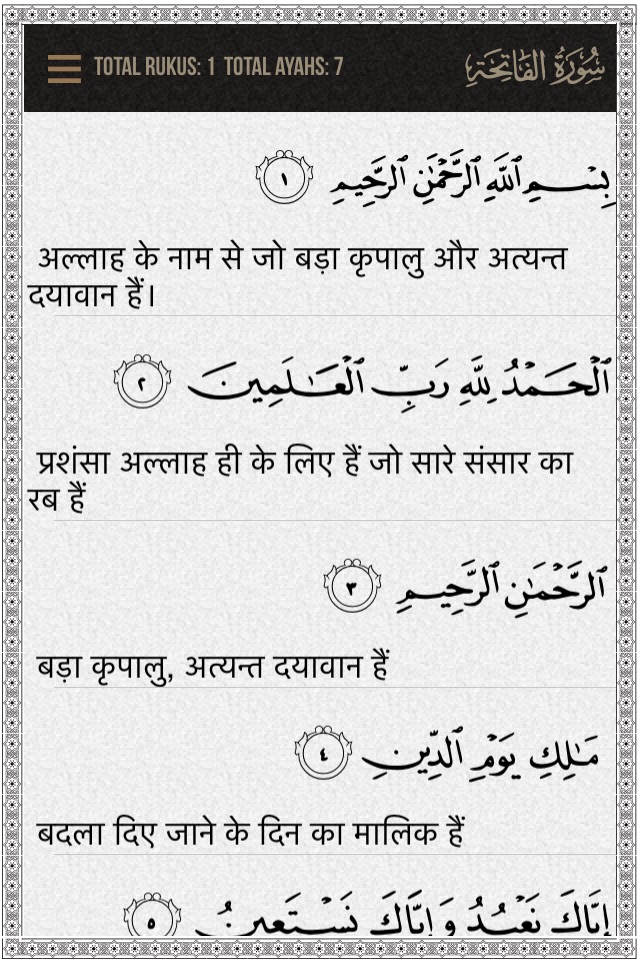 TOTAL RUKUS: 1 TOTAL AYAHS: 7 سُورَةُ الفَاتِحَةِ
بِسْمِ ٱللَّهِ ٱلرَّحْمَٰنِ ٱلرَّحِيمِ ١
अल्लाह के नाम से जो बड़ा कृपालु और अत्यन्त
दयावान हैं।
ٱلْحَمْدُ لِلَّهِ رَبِّ ٱلْعَـٰلَمِينَ ٢
प्रशंसा अल्लाह ही के लिए हैं जो सारे संसार का
रब हैं
ٱلرَّحْمَـٰنِ ٱلرَّحِيمِ ٣
बड़ा कृपालु, अत्यन्त दयावान हैं
مَـٰلِكِ يَوْمِ ٱلدِّينِ ٤
बदला दिए जाने के दिन का मालिक हैं
إِيَّاكَ نَعْبُدُ وَإِيَّاكَ نَسْتَعِينُ ٥